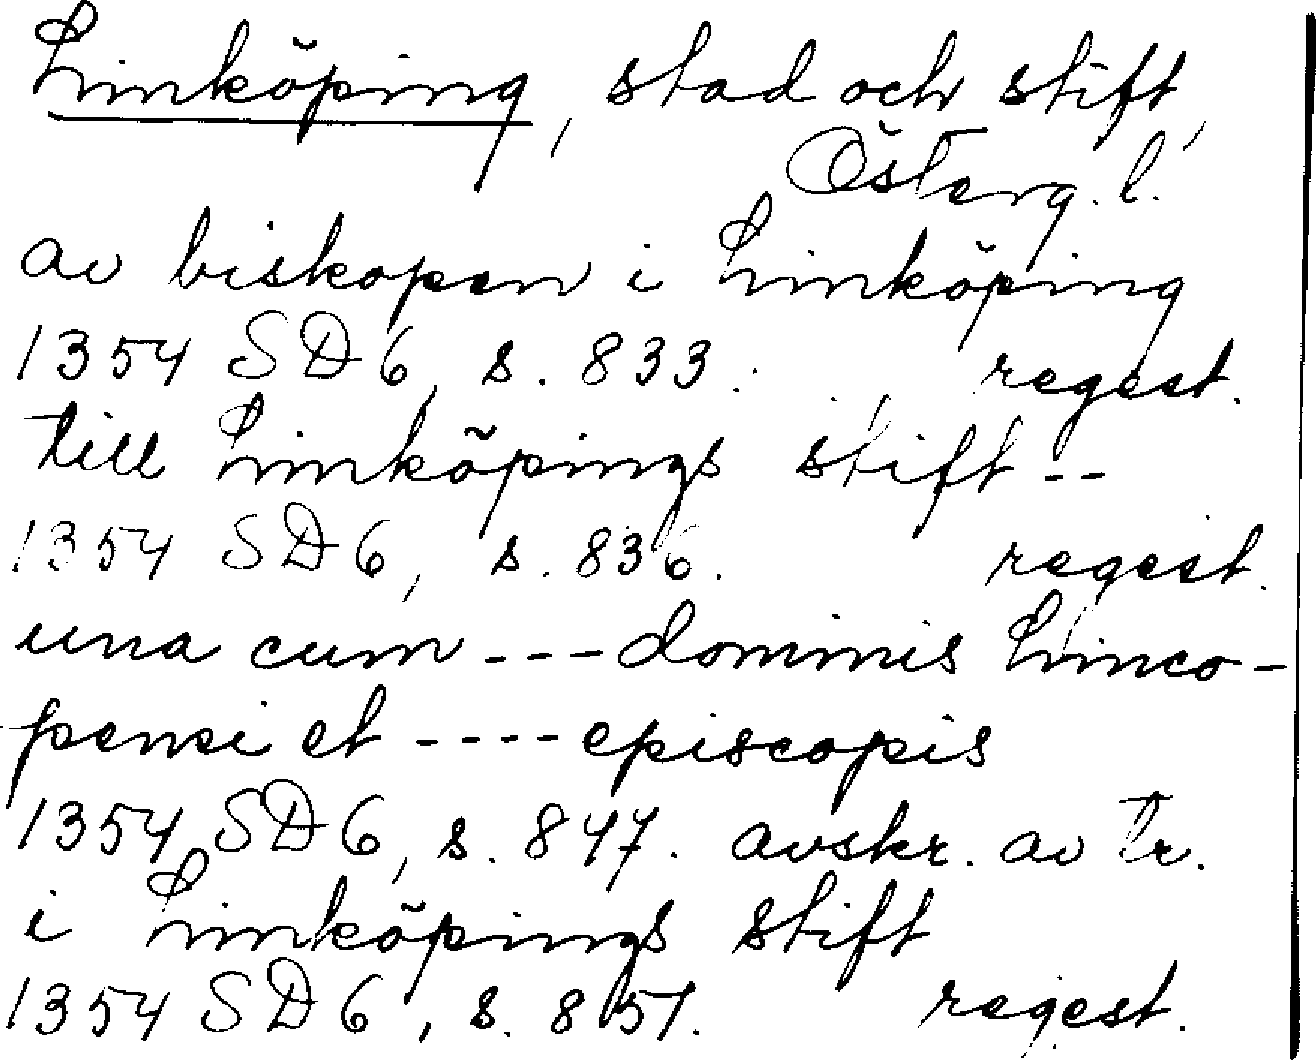 Linköping, stad och stift,
Österg. l.
av biskopen i Linköping
1354 SD 6, s. 833. regest.
till Linköpings stift --
1354 SD 6, s. 836. regest.
una cum --- dominis Linco-
pensi et ---- episcopis
1354 SD 6, s. 847. avskr. av tr.
i Linköpings stift
1354 SD 6, s. 857. regest.